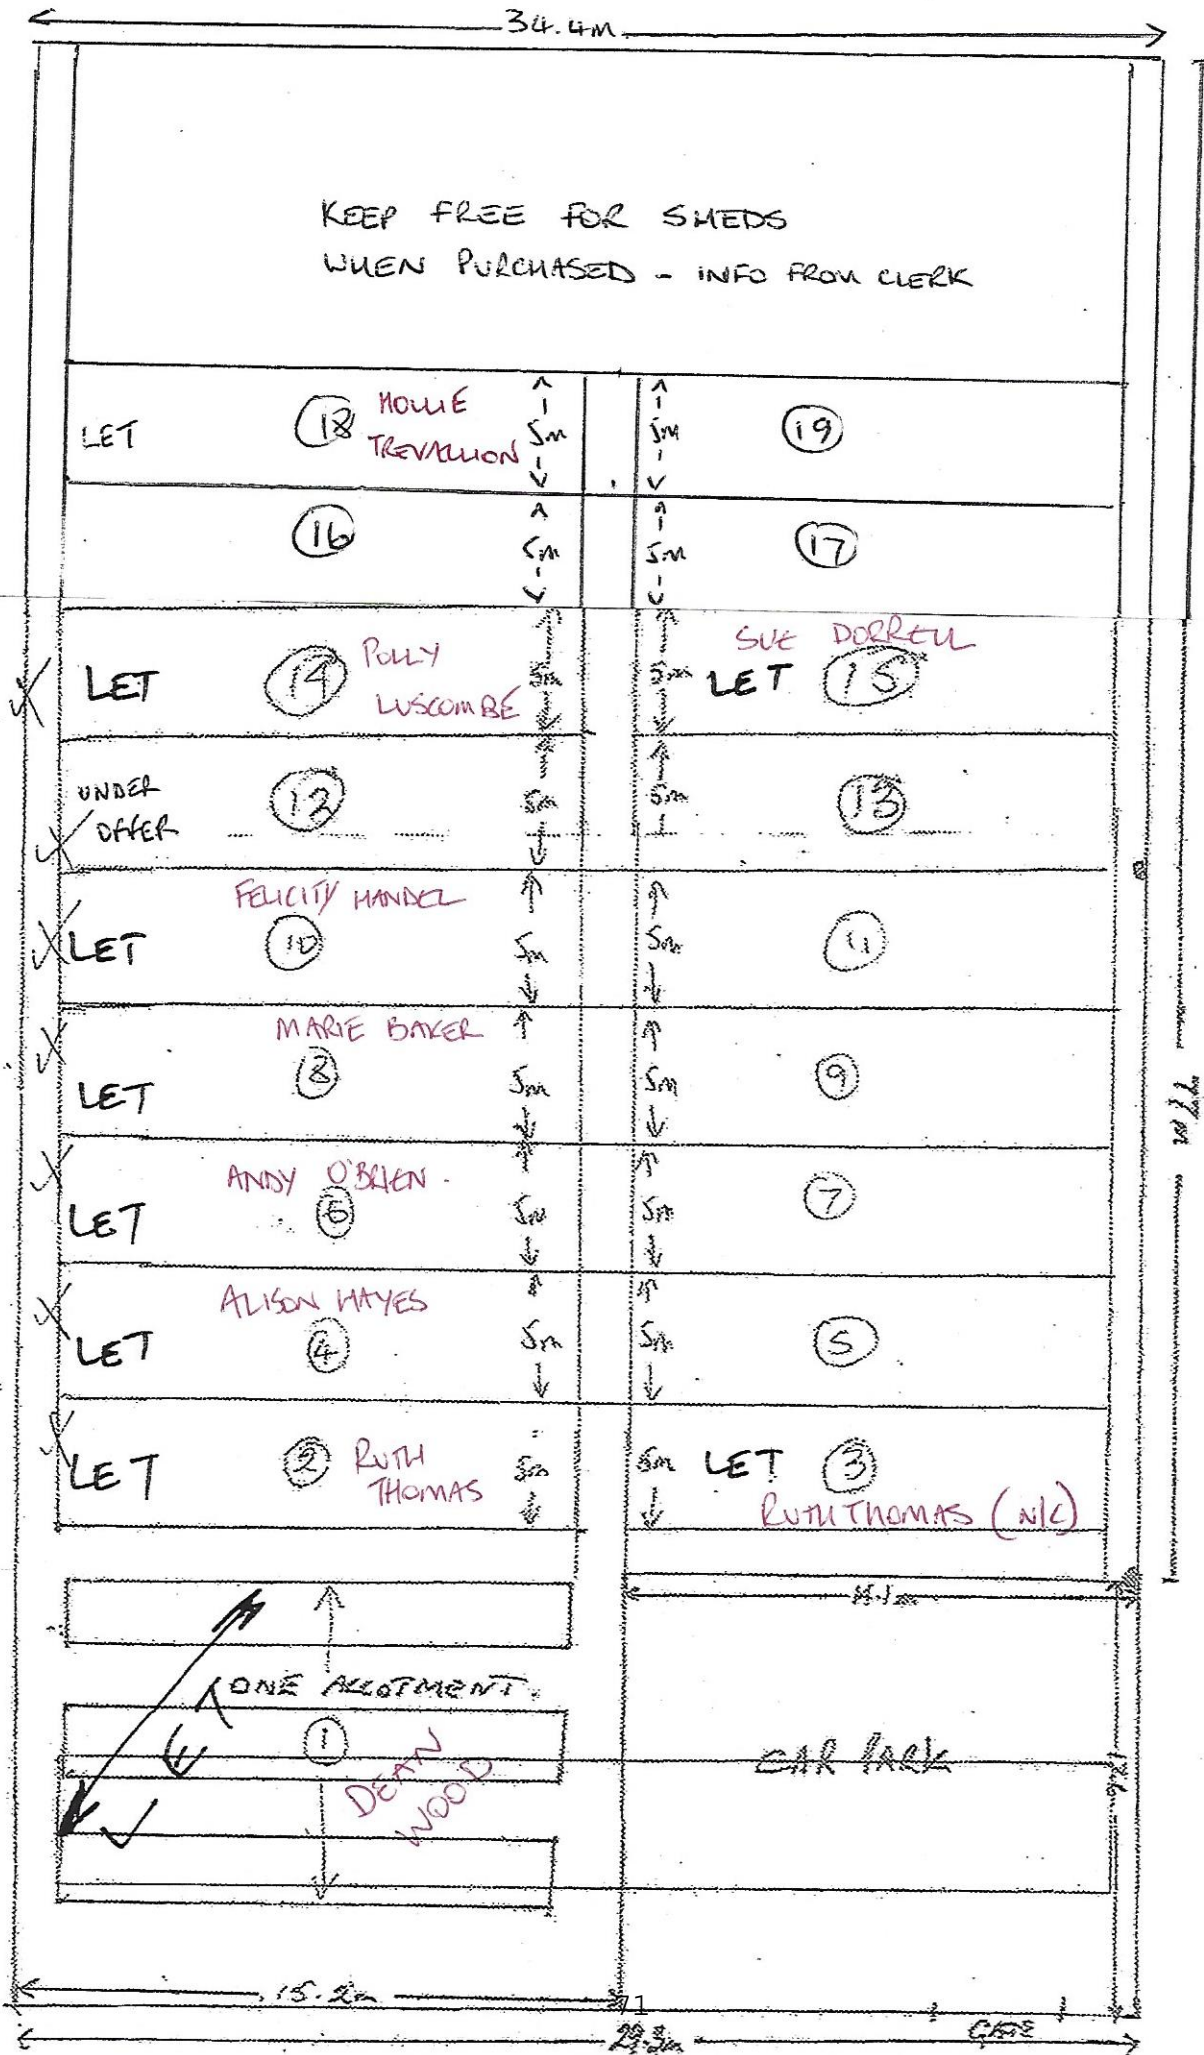 34.4m
KEEP FREE FOR SHEDS
WHEN PURCHASED - INFO FROM CLERK
LET 18 HOLLIE TREVALLION 5m 5m 19
16 5m 5m 17
LET 14 POLLY LUSCOMBE 5m 5m SUE DORRELL LET 15
UNDER OFFER 12 5m 5m 13
FELICITY HANDEL
LET 10 5m 5m 11
MARIE BAKER
LET 8 5m 5m 9
77m
ANDY O'BRIEN
LET 6 5m 5m 7
ALISON HAYES
LET 4 5m 5m 5
LET 2 RUTH THOMAS 5m 5m LET 3
RUTH THOMAS (N/C)
ONE ALLOTMENT.
1 DEAN WOOD
CAR PARK
15.2m
71
29.3m
GATE